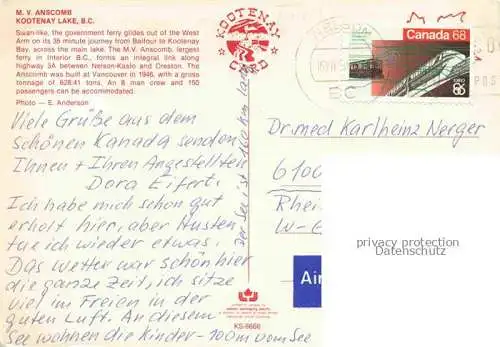 M. V. ANSCOMB
KOOTENAY LAKE, B.C.
Swan-like, the government ferry glides out of the West
Arm on its 35 minute journey from Balfour to Kootenay
Bay, across the main lake. The M.V. Anscomb, largest
ferry in Interior B.C., forms an integral link along
highway 3A between Nelson-Kaslo and Creston. The
Anscomb was built at Vancouver in 1946, with a gross
tonnage of 628.41 tons. An 8 man crew and 150
passengers can be accommodated.
Photo — E. Anderson
Viele Grüße aus dem
schönen Kanada senden
Ihnen + Ihren Angestellten
Dora Eifert.
Ich habe mich schon gut
erholt hier, aber Husten
tue ich wieder etwas.
Das Wetter war schön hier
die ganze Zeit, ich sitze
viel im Freien in der
guten Luft. An diesem
See wohnen die Kinder - 100m vom See
der See ist 160 km lang
KOOTENAY
CARD
KS-6666
BC
Canada 68
EXPO
86
POS
Dr. med Karlheinz Nerger
6100
Rhei
Air
privacy protection
Datenschutz